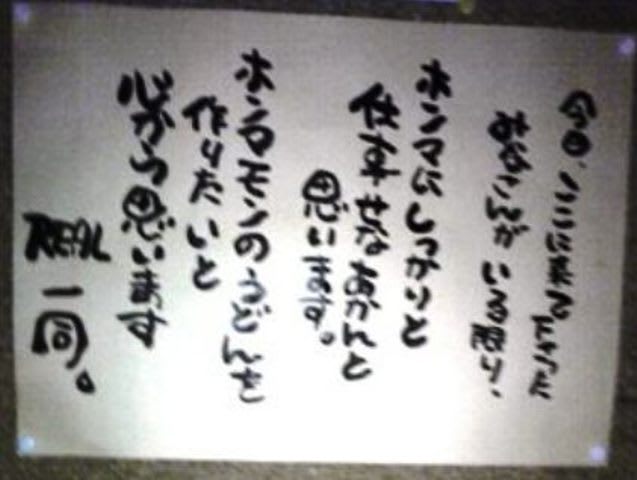 今日、ここに来て下さった
みなさんがいる限り、
ホンマにしっかりと
仕事せなあかんと
思います。
ホンマモンのうどんを
作りたいと
心から思います
REAL
一同。